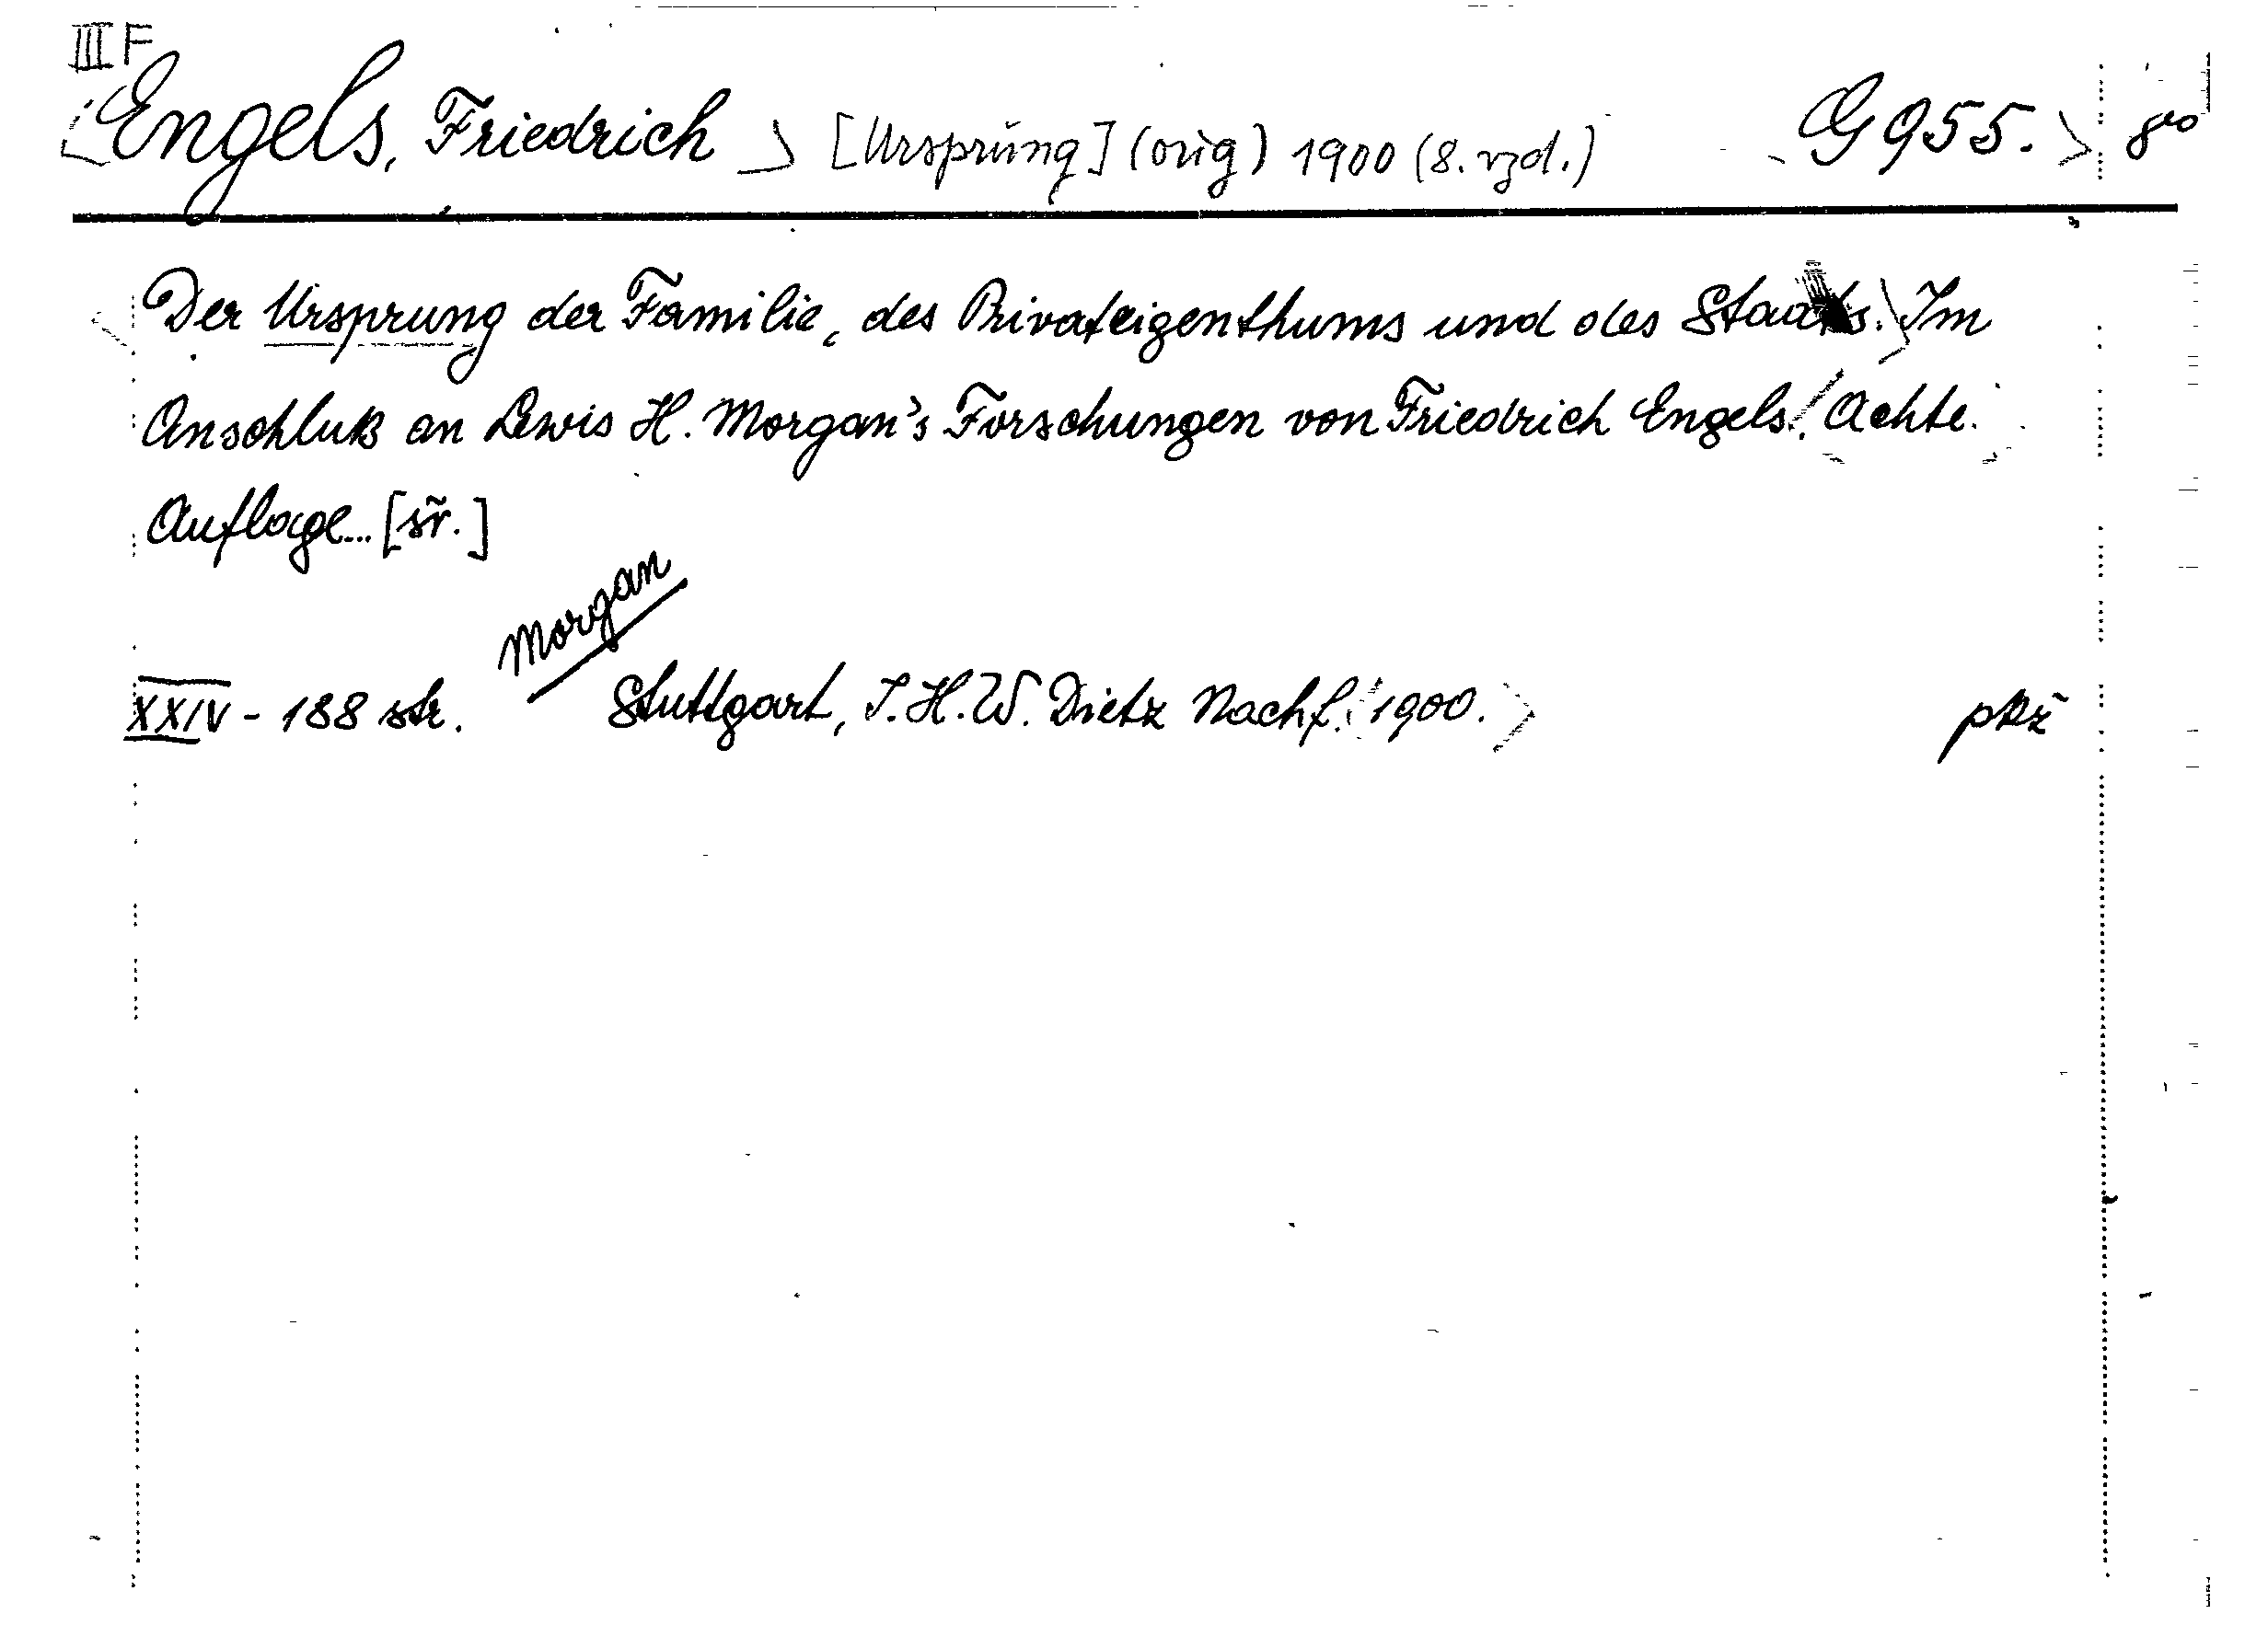 III F
Engels, Friedrich [Ursprŭng] (orig) 1900 (8. vyd.) G 955. 8vo
Der Ursprung der Familie, des Privateigenthums und des Staats. Im
Anschluß an Lewis H. Morgan's Forschungen von Friedrich Engels. Achte
Auflage... [šr.]
Morgan
XXIV - 188 str. Stuttgart, J. H. W. Dietz Nachf. 1900. pkž